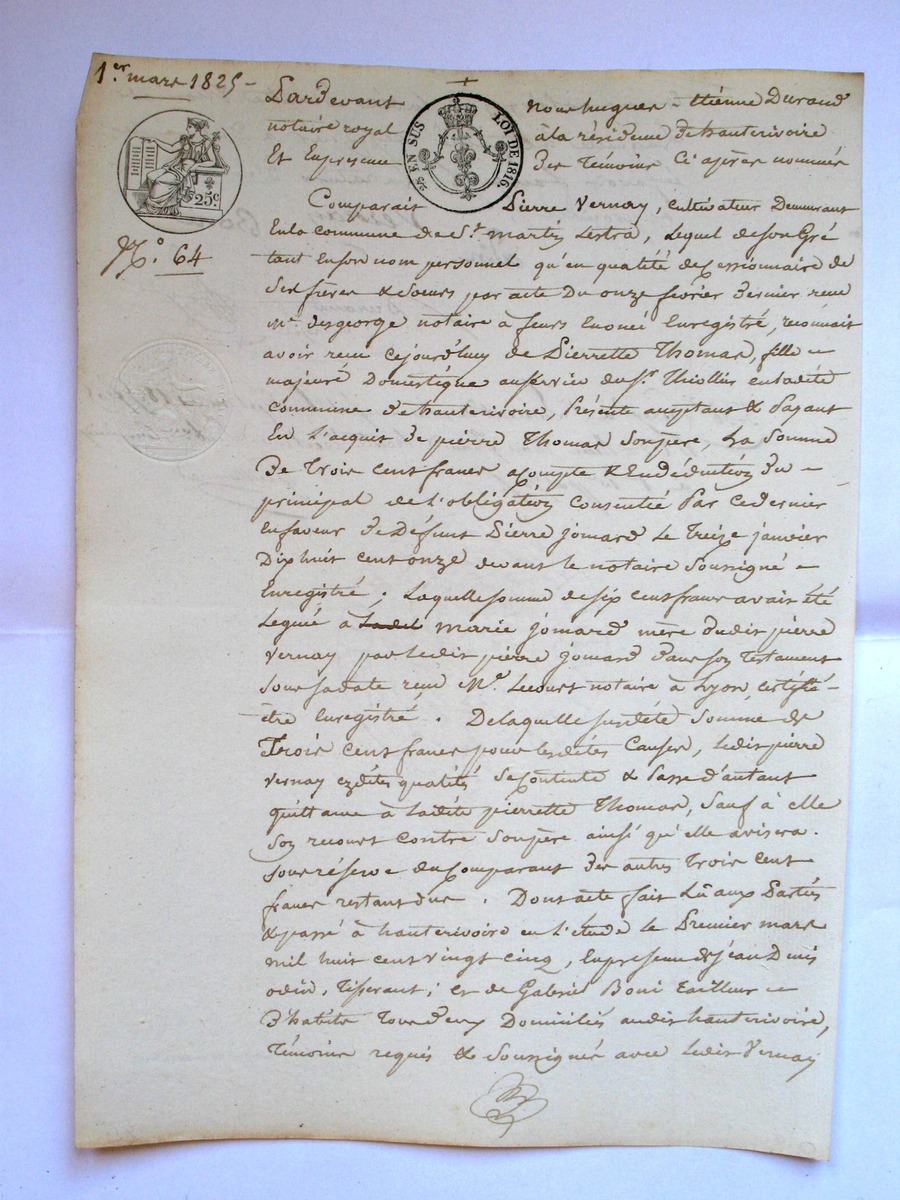 1.er mars 1825 -
Pardevant Nous hugues - Etienne Durand
notaire royal à la résidence de hauterivoire
Et En présence des Témoins Ci après nommés
25 EN SUS LOI DE 1816
25 c
N.o 64
Comparait Pierre Vernay, Cultivateur Demeurant
En la commune de St. martin Lestra, Lequel de son Gré
tant En son nom personnel qu'en qualité de Cessionnaire de
Ses frères & Soeurs par acte Du onze fevrier dernier recu
Me. desgeorge notaire à feurs Enoncé Enregistré, reconnait
avoir recu cejourd'huy de Pierrette Thomas, fille -
majeure Domestique au service du Sr. Thiollier en ladite
commune de hauterivoire, Présente acceptant & Payant
En l'acquit de pierre Thomas Son père, La Somme
De Trois Cent francs acompte & En déduction du -
principal de l'obligation Consentie Par Ce dernier
En faveur de Défunt Pierre jomard Le Treize janvier
Dix huit cent onze devant le notaire Soussigné -
Enregistré ; Laquelle somme de six cent francs avait été
Leguée à Ladit marie jomard mère dudit pierre
Vernay par ledit pierre jomard dans son Testament
Sous sa date recu Me. Lecourt notaire à Lyon, Certifié -
être Enregistré. De laquelle susdite Somme de
Trois Cent francs pour lesdites Causes, Ledit pierre
Vernay ezdites qualités se Contente & Passe d'autant
quittance à Ladite pierrette Thomas, Sauf à elle
Son recours contre Son père ainsi qu'elle avisera.
Sous réserve du Comparant des autres Trois Cent
francs restant dus. Dont acte fait Lû aux Parties
& passé à hauterivoire en L'étude le Premier mars
mil huit cent vingt cinq, En présence de jean Denis
odin, Tisserant ; Et de Gabriel Boni Tailleur -
D'habits Tous deux Domiciliés audit hauterivoire,
Témoins requis & Soussignés avec Ledit Vernay